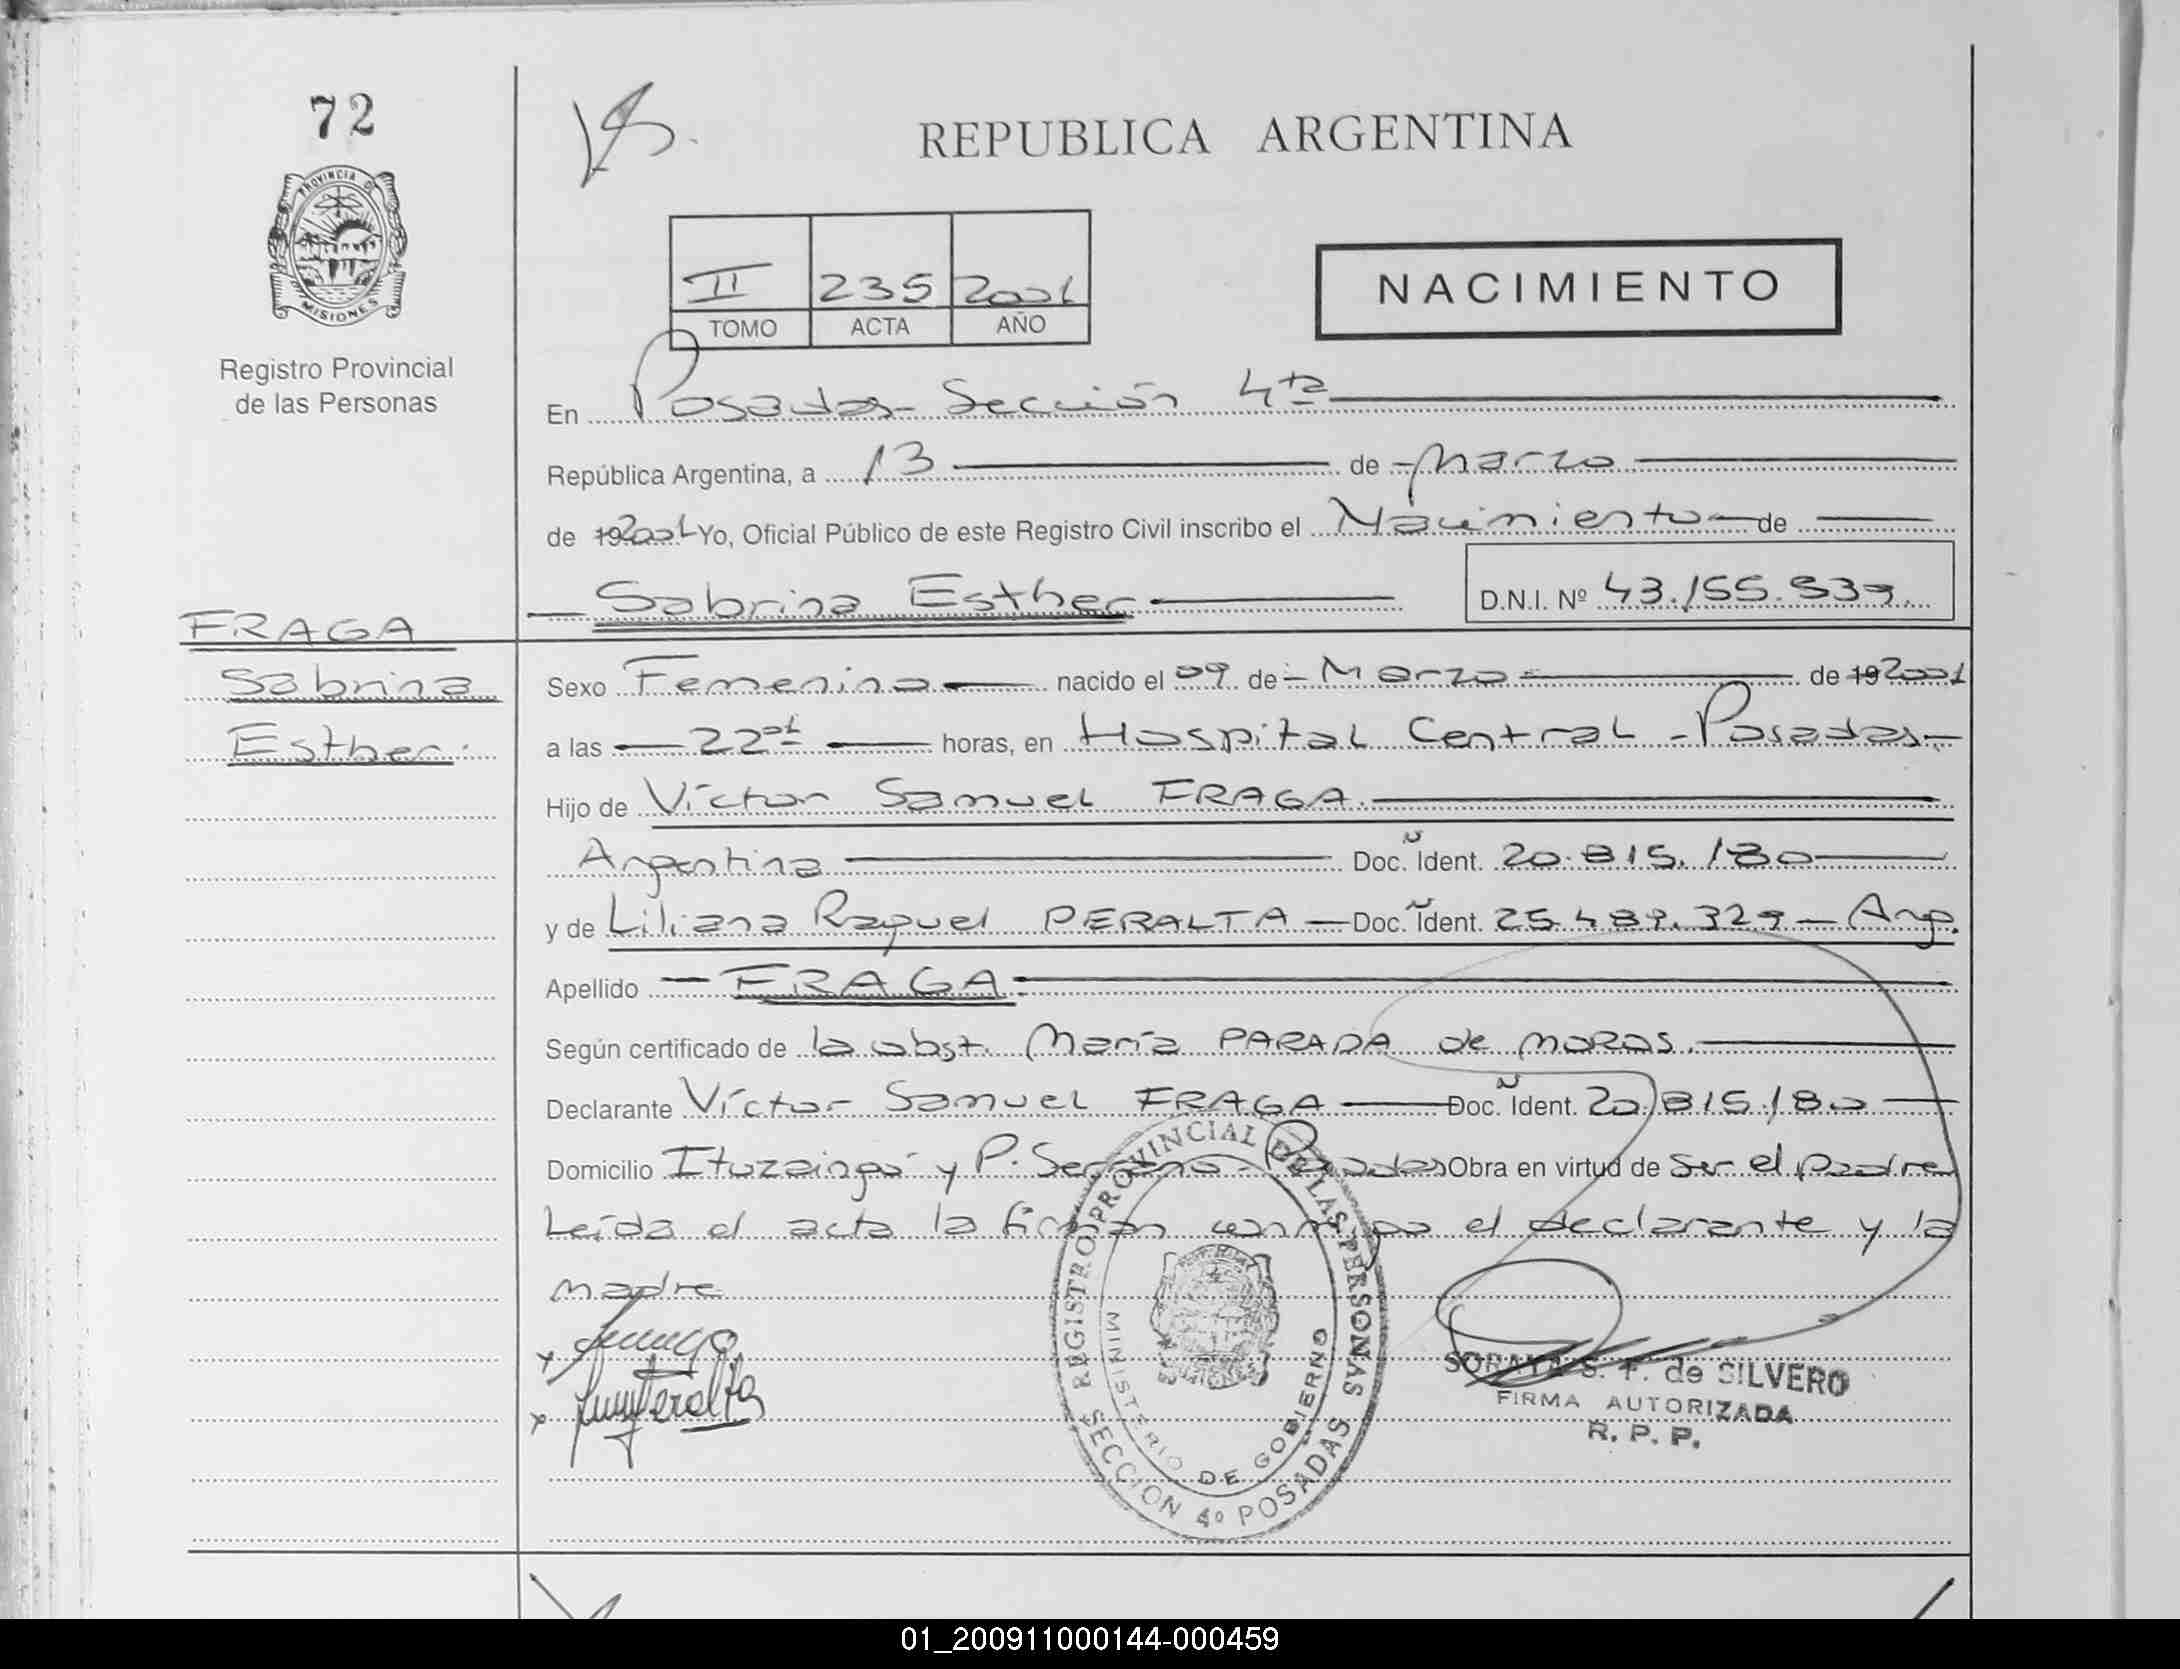 72
REPUBLICA ARGENTINA
PROVINCIA DE
MISIONES
Registro Provincial
de las Personas
II 235 2001
TOMO ACTA AÑO
NACIMIENTO
En Posadas - Sección 4ta
República Argentina, a 13 de Marzo
de 19 2001 Yo, Oficial Público de este Registro Civil inscribo el Nacimiento de
Sabrina Esther D.N.I. Nº 43.155.939.
FRAGA
Sabrina
Esther.
Sexo Femenino nacido el 09 de Marzo de 19 2001
a las 22 horas, en Hospital Central - Posadas-
Hijo de Víctor Samuel FRAGA.
Argentina Doc. Ident. 20.815.180
y de Liliana Raquel PERALTA Doc. Ident. 25.489.329 - Arg.
Apellido FRAGA
Según certificado de la obst. María PARADA de MORAS.
Declarante Víctor Samuel FRAGA Doc. Ident. 20.815.180
Domicilio Ituzaingó y P. Serrano - Posadas Obra en virtud de ser el padre
Leída el acta la firman conmigo el declarante y la
madre
REGISTRO PROVINCIAL DE LAS PERSONAS
MINISTERIO DE GOBIERNO
SECCION 4º POSADAS
SORAYA S. F. de SILVERO
FIRMA AUTORIZADA
R. P. P.
01_200911000144-000459